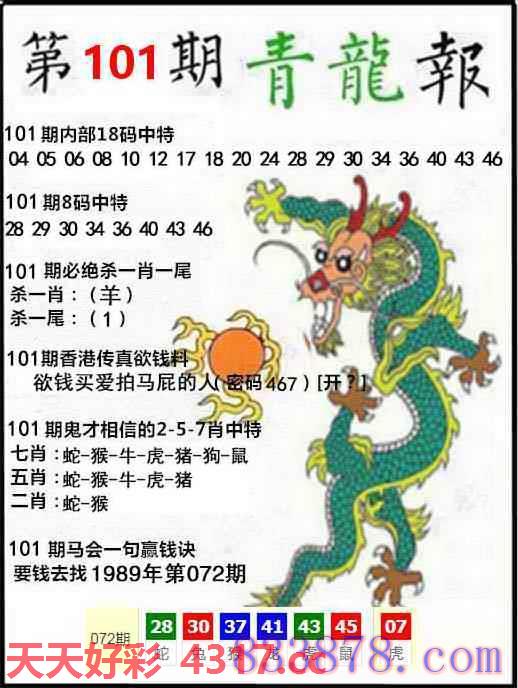 第101期 青龍報
101期内部18码中特
04 05 06 08 10 12 17 18 20 24 28 29 30 34 36 40 43 46
101期8码中特
28 29 30 34 36 40 43 46
101期必绝杀一肖一尾
杀一肖：（羊）
杀一尾：（1）
101期香港传真欲钱料
欲钱买爱拍马屁的人（密码467）[开？]
101期鬼才相信的2-5-7肖中特
七肖：蛇-猴-牛-虎-猪-狗-鼠
五肖：蛇-猴-牛-虎-猪
二肖：蛇-猴
101期马会一句赢钱诀
要钱去找1989年第072期
072期 28 30 37 41 43 45 07
蛇 兔 猴 龙 虎 鼠 虎
天天好彩 4317.cc